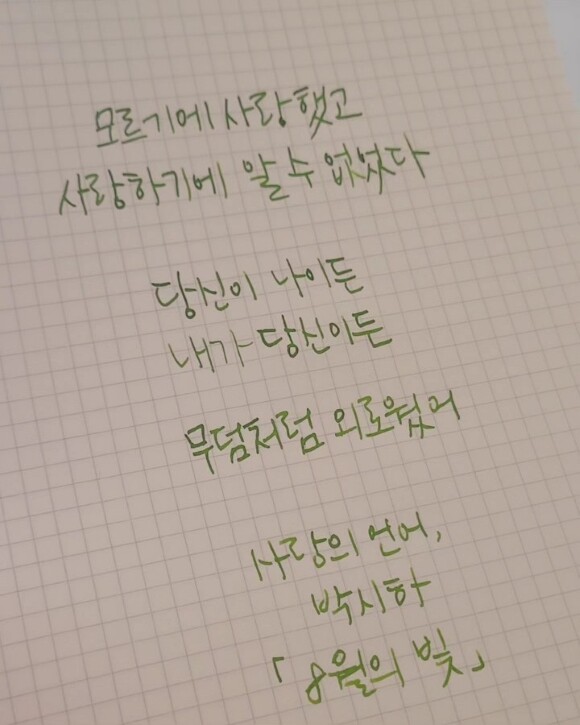 모르기에 사랑했고
사랑하기에 알 수 없었다
당신이 나이든
내가 당신이든
무덤처럼 외로웠어
사랑의 언어,
박시하
「8월의 빛」